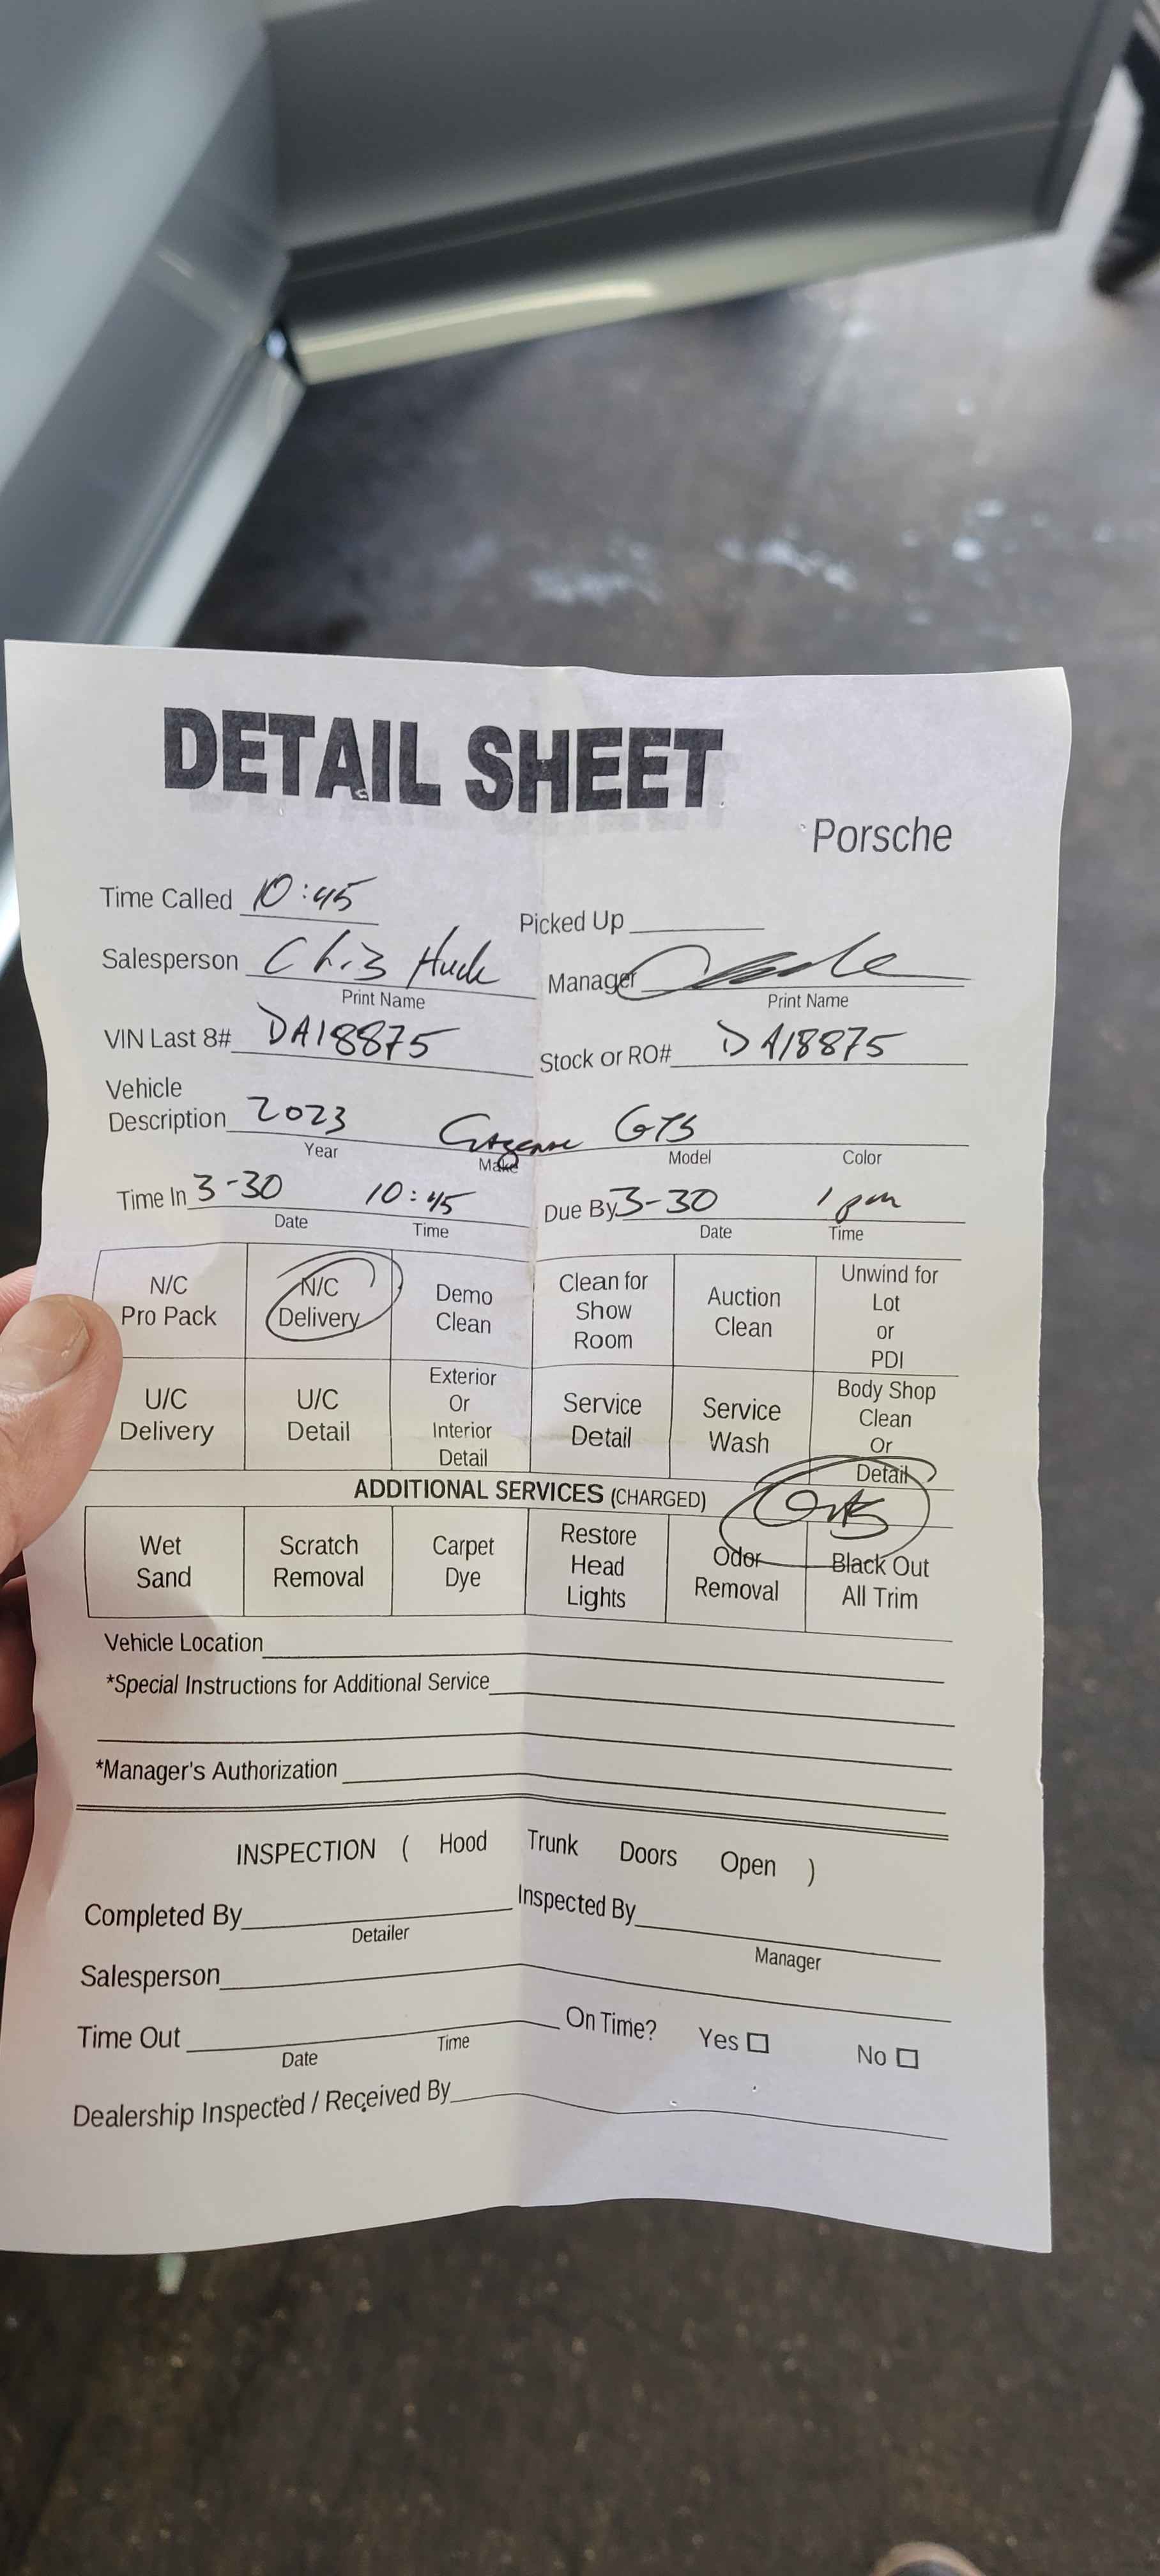 DETAIL SHEET
Porsche
Time Called 10:45
Picked Up
Salesperson Chris Huck
Manager
Print Name
Print Name
VIN Last 8# DA18875
Stock or RO# DA18875
Vehicle
Description 2023 Cayenne GTS
Year Make Model Color
Time In 3-30 10:45 Due By 3-30 1 pm
Date Time Date Time
N/C
Pro Pack
N/C
Delivery
Demo
Clean
Clean for
Show
Room
Auction
Clean
Unwind for
Lot
or
PDI
U/C
Delivery
U/C
Detail
Exterior
Or
Interior
Detail
Service
Detail
Service
Wash
Body Shop
Clean
Or
Detail
ADDITIONAL SERVICES (CHARGED)
Wet
Sand
Scratch
Removal
Carpet
Dye
Restore
Head
Lights
Odor
Removal
Black Out
All Trim
Vehicle Location
*Special Instructions for Additional Service
*Manager's Authorization
INSPECTION ( Hood Trunk Doors Open )
Completed By
Inspected By
Detailer
Manager
Salesperson
Time Out
On Time? Yes No
Date Time
Dealership Inspected / Received By